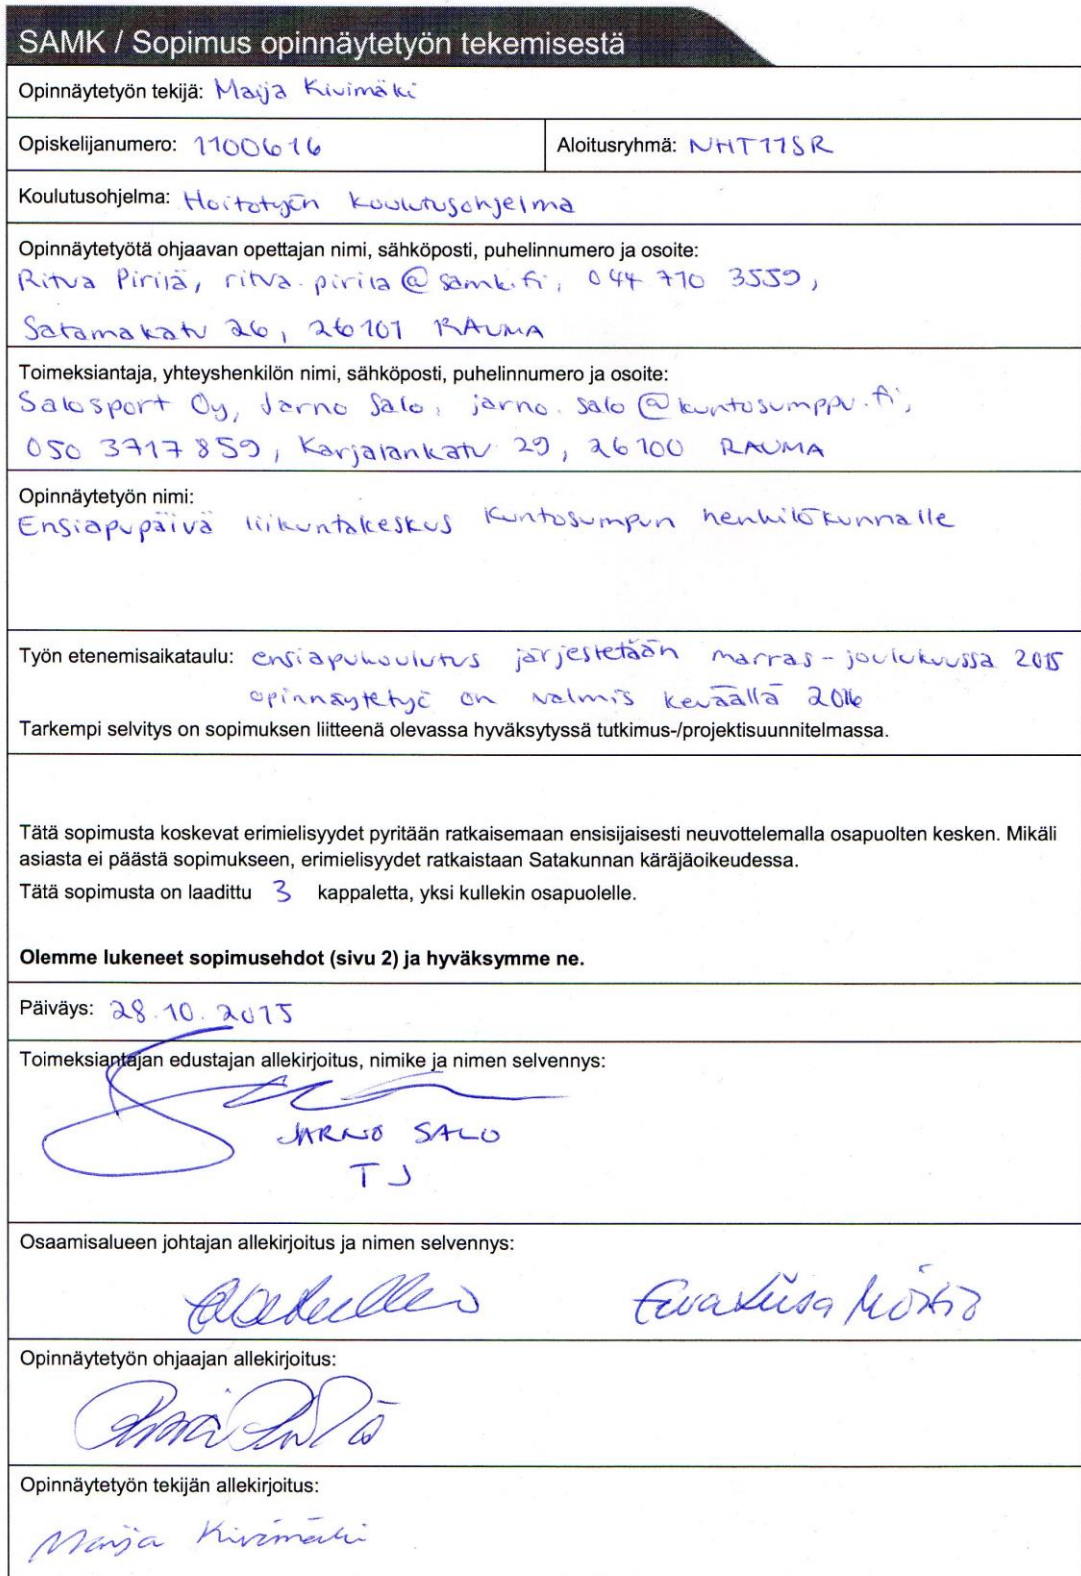 SAMK / Sopimus opinnäytetyön tekemisestä
Opinnäytetyön tekijä: Maija Kivimäki
Opiskelijanumero: 1100616
Aloitusryhmä: NHT11SR
Koulutusohjelma: Hoitotyön koulutusohjelma
Opinnäytetyötä ohjaavan opettajan nimi, sähköposti, puhelinnumero ja osoite:
Ritva Pirilä, ritva.pirila@samk.fi, 044 710 3559,
Satamakatu 26, 26101 RAUMA
Toimeksiantaja, yhteyshenkilön nimi, sähköposti, puhelinnumero ja osoite:
Salosport Oy, Jarno Salo, jarno.salo@kuntosumppu.fi,
050 3717 859, Karjalankatu 29, 26100 RAUMA
Opinnäytetyön nimi:
Ensiapupäivä liikuntakeskus Kuntosumpun henkilökunnalle
Työn etenemisaikataulu: ensiapukoulutus järjestetään marras-joulukuussa 2015
opinnäytetyö on valmis keväällä 2016
Tarkempi selvitys on sopimuksen liitteenä olevassa hyväksytyssä tutkimus-/projektisuunnitelmassa.
Tätä sopimusta koskevat erimielisyydet pyritään ratkaisemaan ensisijaisesti neuvottelemalla osapuolten kesken. Mikäli
asiasta ei päästä sopimukseen, erimielisyydet ratkaistaan Satakunnan käräjäoikeudessa.
Tätä sopimusta on laadittu 3 kappaletta, yksi kullekin osapuolelle.
Olemme lukeneet sopimusehdot (sivu 2) ja hyväksymme ne.
Päiväys: 28.10.2015
Toimeksiantajan edustajan allekirjoitus, nimike ja nimen selvennys:
JARNO SALO
TJ
Osaamisalueen johtajan allekirjoitus ja nimen selvennys:
Opinnäytetyön ohjaajan allekirjoitus:
Opinnäytetyön tekijän allekirjoitus:
Maija Kivimäki